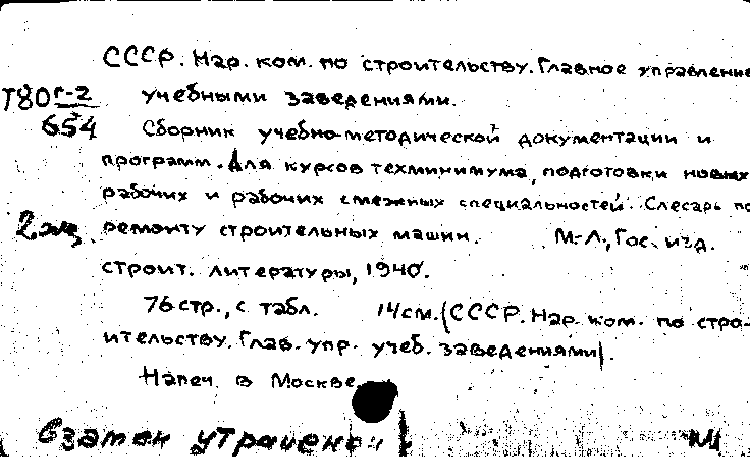 СССР. Нар. ком. по строительству. Главное управление
Т80 г-2 учебными заведениями.
654 Сборник учебно-методической документации и
программ. Для курсов техминимума, подготовки новых
рабочих и рабочих смежных специальностей. Слесарь по
2 экз. ремонту строительных машин. М.-Л., Гос. изд.
строит. литературы, 1940.
76 стр., с табл. 14 см. (СССР. Нар. ком. по стро-
ительству. Глав. упр. учеб. заведениями).
Напеч. в Москве.
Взамен утраченой